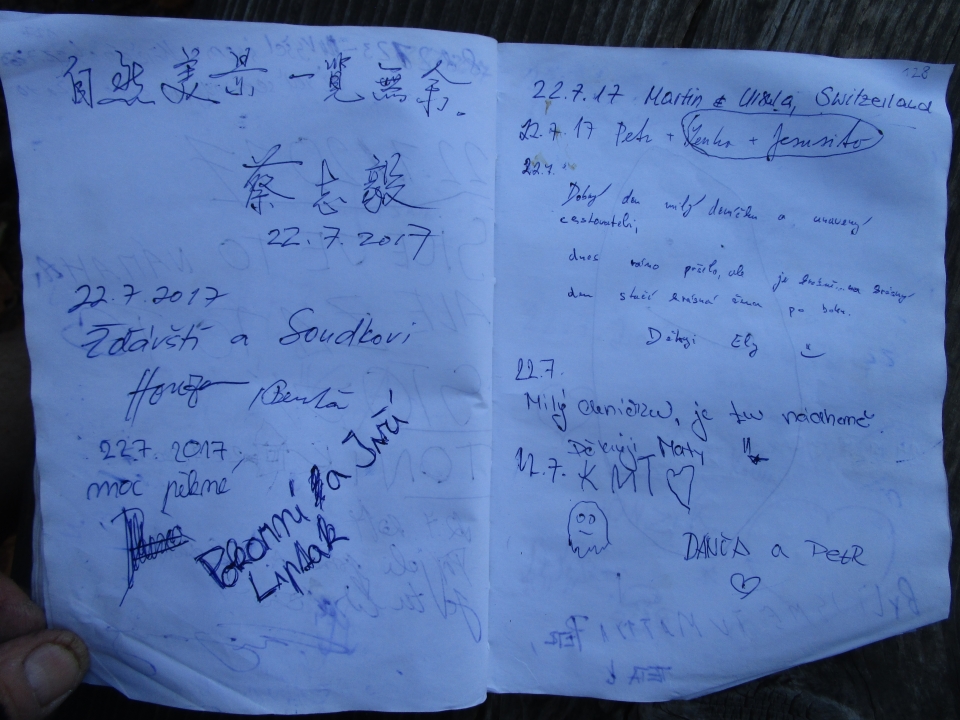 自然美景一覽無余.
蔡志毅
22.7.2017
22.7.2017
Žďávští a Soudkovi
Honza
22.7.2017
moc pěkné
a Jiří
Lipták
128
22.7.17 Martin & Ursula, Switzerland
22.7.17 Petr + Lenka + Jesusito
22.7.
Dobrý den milý deníčku a unavený
cestovateli,
dnes ráno pršelo, ale je
den stačí krásná žena po boku.
Děkuji Ely
22.7.
Milý deníčku, je tu nádherně.
Děkuji Maty
22.7. KMT
DANČA a PETR